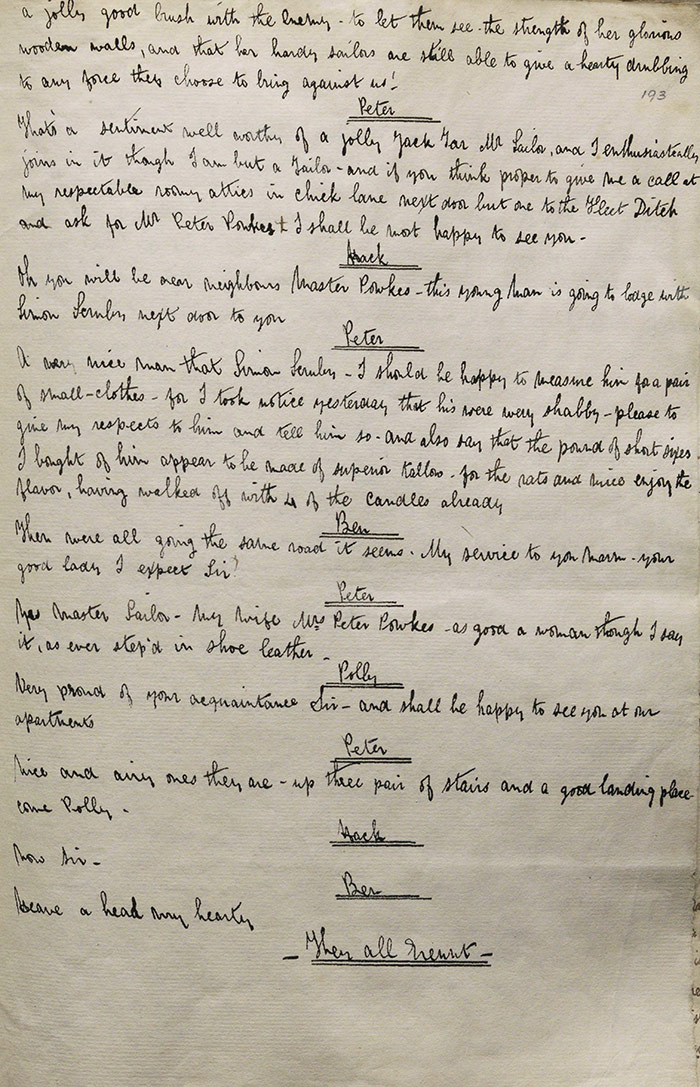 a jolly good brush with the Enemy - to let them see the strength of her glorious
wooden walls, and that her hardy sailors are still able to give a hearty drubbing
to any force they choose to bring against us!
193
Peter
That's a sentiment well worthy of a jolly Jack Tar Mr Sailor, and I enthusiastically
joins in it though I am but a Tailor - and if you think proper to give me a call at
my respectable roomy attics in chick lane next door but one to the Fleet Ditch
and ask for Mr Peter Powkes + I shall be most happy to see you -
Hack
Oh you will be near neighbours Master Powkes - this young Man is going to lodge with
Simon Scruby next door to you
Peter
A very nice man that Simon Scruby - I should be happy to measure him for a pair
of small-clothes - for I took notice yesterday that his were very shabby - please to
give my respects to him and tell him so - and also say that the pound of short sixes
I bought of him appear to be made of superior tallow - for the rats and mice enjoy the
flavor, having walked off with 4 of the candles already
Ben
Then were all going the same road it seems. My service to you Marm - your
good lady I expect Sir?
Peter
Yes Master Sailor - My Wife Mrs Peter Powkes - as good a woman though I say
it, as ever step'd in shoe leather -
Polly
Very proud of your acquaintance Sir - and shall be happy to see you at our
apartments
Peter
Nice and airy ones they are - up three pair of stairs and a good landing place -
come Polly -
Hack
Now Sir -
Ben
Heave a head my hearty
- They all Exeunt -